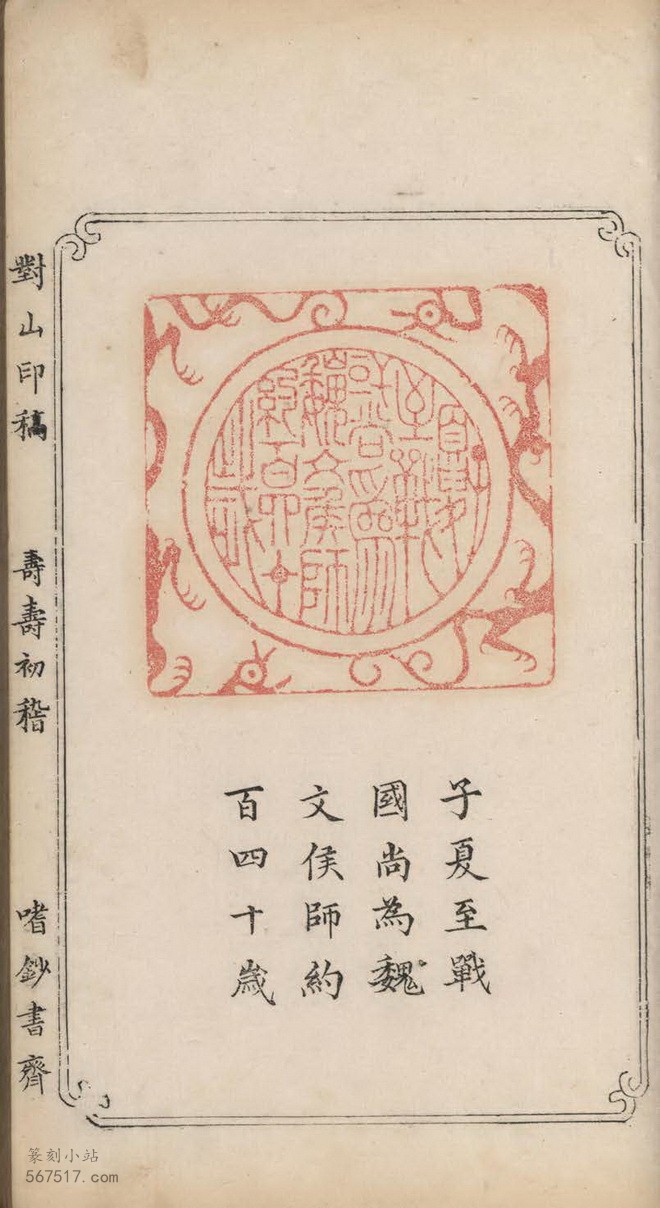 子夏至戰
國尚為魏
文侯師約
百四十歲
對山印稿
壽壽初稽
嗜鈔書齊
篆刻小站
567517.com